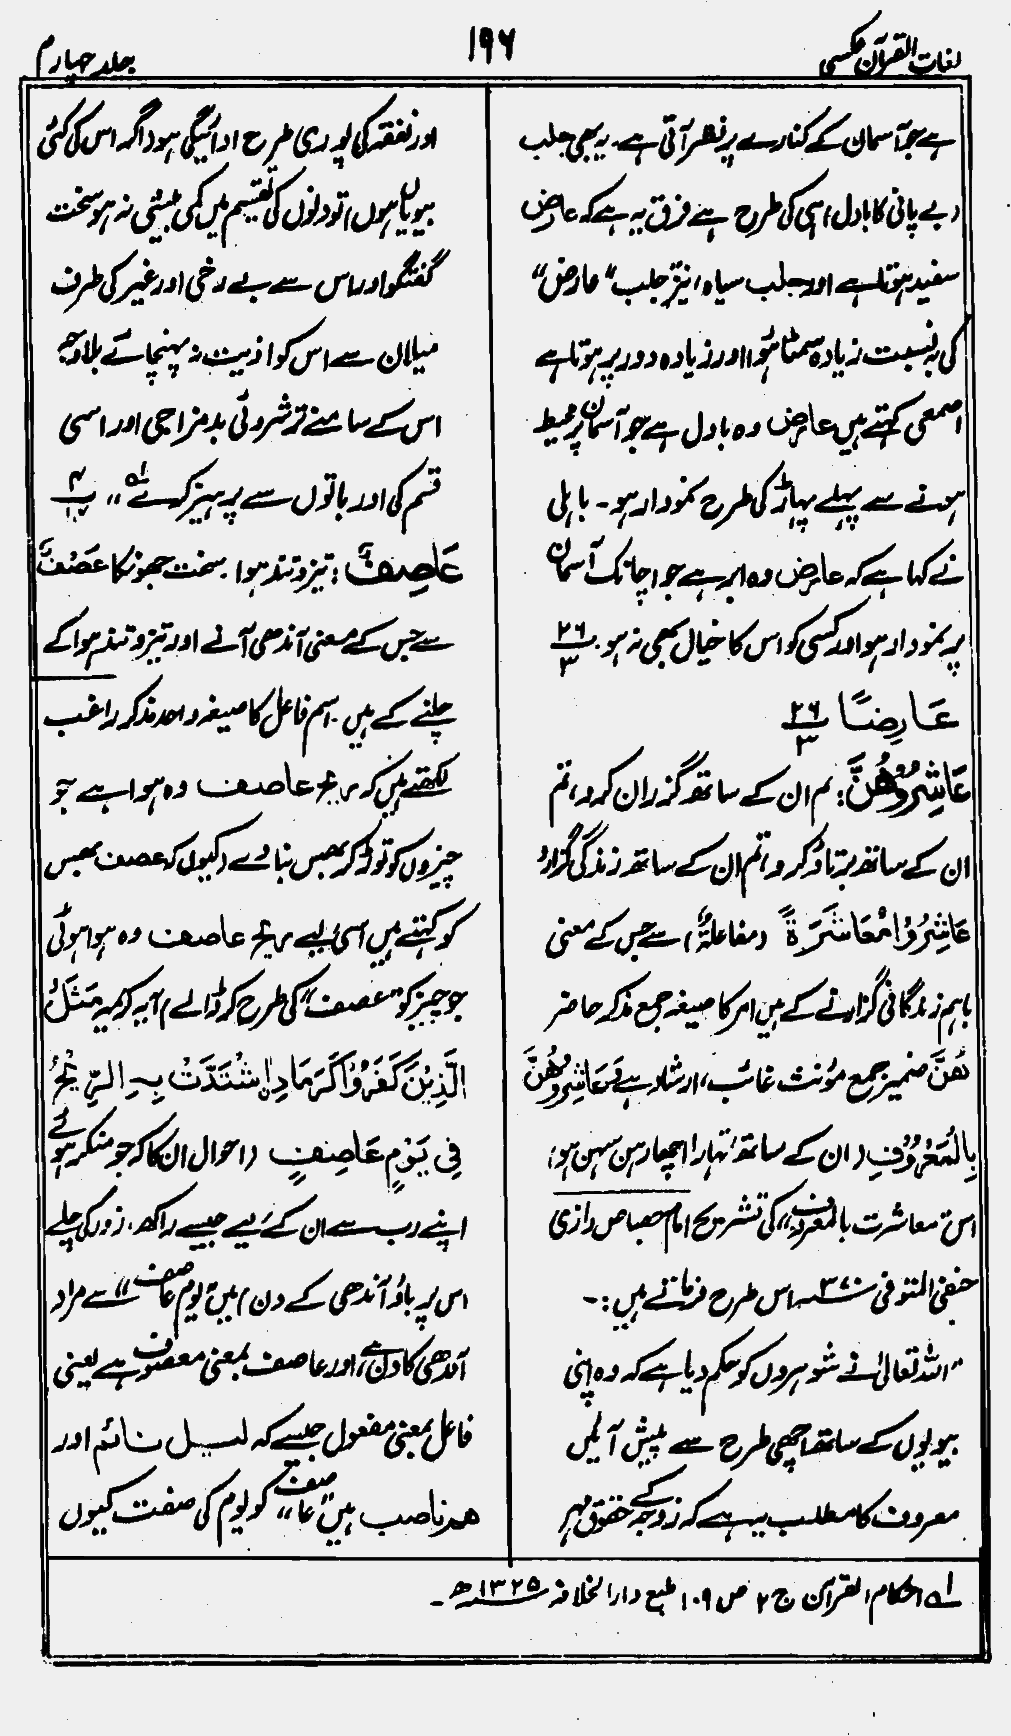 لغات القرآن عکسی
۱۹۶
جلد چہارم
ہے جو آسمان کے کنارے پر نظر آتی ہے۔ یہ بھی جلب
(بے پانی کا بادل) ہی کی طرح ہے فرق یہ ہے کہ عارض
سفید ہوتا ہے اور جلب سیاہ، نیز جلب "عارض"
کی بہ نسبت زیادہ سمٹا ہُوا اور زیادہ دور پر ہوتا ہے
اصمعی کہتے ہیں عارض وہ بادل ہے جو آسمان پر محیط
ہونے سے پہلے پہاڑ کی طرح نمودار ہو۔ باہلی
نے کہا ہے کہ عارض وہ ابر ہے جو اچانک آسمان
پر نمودار ہو اور کسی کو اس کا خیال بھی نہ ہو۔ ۲۶/۳
عَارِضًا ۲۶/۳
عَاشِرُوْهُنَّ: تم ان کے ساتھ گزران کرو، تم
ان کے ساتھ برتاؤ کرو، تم ان کے ساتھ زندگی گزارو
عَاشِرُوْا مُعَاشَرَةً (مفاعلةٌ) سے جس کے معنی
باہم زندگانی گزارنے کے ہیں امر کا صیغہ جمع مذکر حاضر
هُنَّ ضمیر جمع مؤنث غائب، ارشاد ہے وَعَاشِرُوْهُنَّ
بِالْمَعْرُوْفِ (ان کے ساتھ تمہارا اچھا رہن سہن ہو)
اس "معاشرت بالمعروف" کی تشریح امام جصاص رازی
حنفی المتوفی ۳۷۰ھ اس طرح فرماتے ہیں :۔
"اللہ تعالیٰ نے شوہروں کو حکم دیا ہے کہ وہ اپنی
بیویوں کے ساتھ اچھی طرح سے پیش آئیں
معروف کا مطلب یہ ہے کہ زوجہ کے حقوق مہر
اور نفقہ کی پوری طرح ادائیگی ہو (اگر اس کی کئی
بیویاں ہوں) تو دنوں کی تقسیم میں کمی بیشی نہ ہو سخت
گفتگو اور اس سے بے رخی اور غیر کی طرف
میلان سے اس کو اذیت نہ پہنچائے بلاوجہ
اس کے سامنے ترشروئی بدمزاجی اور اسی
قسم کی اور باتوں سے پرہیز کرے"۱ھ ۴
عَاصِفٌ: تیز و تند ہوا۔ سخت جھونکا عَصْفٌ
سے جس کے معنی آندھی آنے اور تیز و تند ہوا کے
چلنے کے ہیں۔ اسم فاعل کا صیغہ واحد مذکر راغب
لکھتے ہیں کہ ریح عاصف وہ ہوا ہے جو
چیزوں کو توڑ کر بھس بنا دے (کیوں کہ عصف بھس
کو کہتے ہیں اسی لیے ریح عاصف وہ ہوا ہوئی
جو چیز کو "عصف" کی طرح کر ڈالے) آیہ کریمہ مَثَلُ
الَّذِيْنَ كَفَرُوْا كَرَمَادِ اِشْتَدَّتْ بِهِ الرِّيْحُ
فِيْ يَوْمٍ عَاصِفٍ (احوال ان کا کہ جو منکر ہوئے
اپنے رب سے ان کے کیے جیسے راکھ، زور کی چلے
اس پر باؤ آندھی کے دن) میں "یوم عاصف" سے مراد
آندھی کا دن ہے، اور عاصف بمعنی معصوف ہے یعنی
فاعل بمعنی مفعول جیسے کہ لیل نائم اور
هم ناصب میں "عاصف" کو یوم کی صفت کیوں
۱ھ احکام القرآن ج ۲ ص ۱۰۹ طبع دار الخلافہ ۱۳۲۵ھ۔